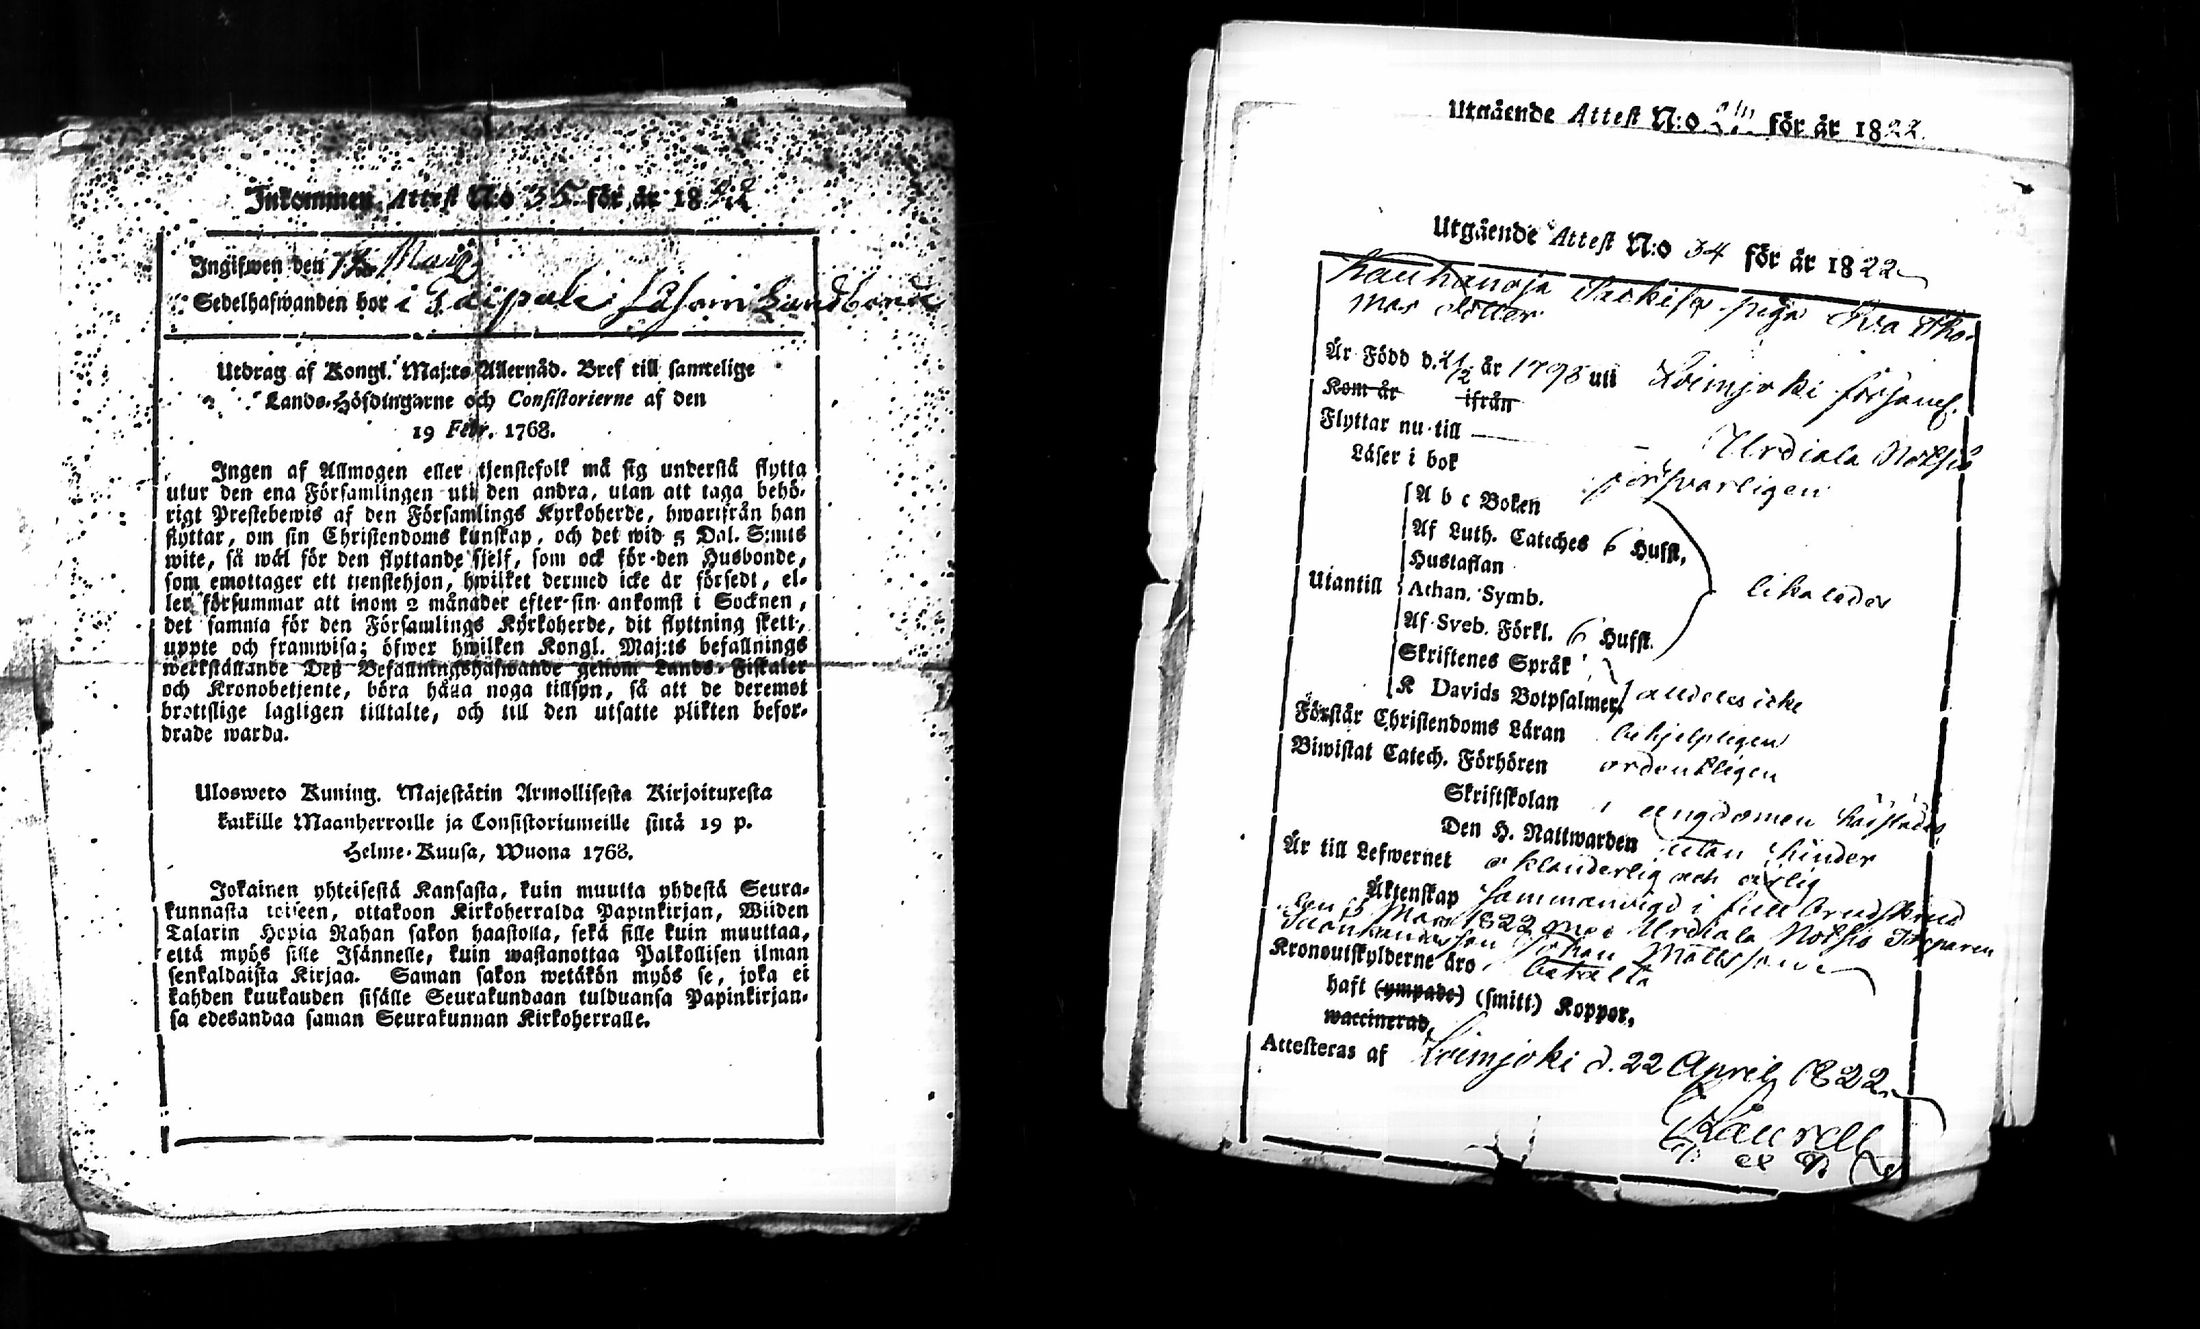 Inkommen Attest N:o 35 för år 1822
Ingifwen den Maij
Sedelhafwanden bor i Taipale såsom Landbonde
Utdrag af Kongl. Maj:ts Allernåd. Bref till samtelige
Lands-Höfdingarne och Consistorierne af den
19 Febr. 1768.
Ingen af Allmogen eller tjenstefolk må sig understå flytta
utur den ena Församlingen uti den andra, utan att taga behö-
rigt Prestebewis af den Församlings Kyrkoherde, hwarifrån han
flyttar, om sin Christendoms kunskap, och det wid 5 Dal. S:mts
wite, så wäl för den flyttande sjelf, som ock för den Husbonde,
som emottager ett tjenstehjon, hwilket dermed icke är försedt, el-
ler försummar att inom 2 månader efter sin ankomst i Socknen,
det samma för den Församlings Kyrkoherde, dit flyttning skett,
uppte och framwisa; öfwer hwilken Kongl. Maj:ts befallnings
werkställande Deß Befallningshafwande genom Lands-Fiskaler
och Kronobetjente, böra hålla noga tillsyn, så att de deremot
brottslige lagligen tilltalte, och till den utsatte plikten befor-
drade warda.
Ulosweto Kuning. Majestätin Armollisesta Kirjoituxesta
kaikille Maanherroille ja Consistoriumeille siitä 19 p.
Helme-Kuusa, Wuona 1768.
Jokainen yhteisestä Kansasta, kuin muutta yhdestä Seura-
kunnasta toiseen, ottakoon Kirkoherralda Papinkirjan, Wiiden
Talarin Hopia Rahan sakon haastolla, sekä sille kuin muuttaa,
että myös sille Isännelle, kuin wastanottaa Palkollisen ilman
senkaldaista Kirjaa. Saman sakon wetäkön myös se, joka ei
kahden kuukauden sisälle Seurakundaan tulduansa Papinkirjan-
sa edesandaa saman Seurakunnan Kirkoherralle.
Utgående Attest N:o för år 1822
Utgående Attest N:o 34 för år 1822
Kauhanoja piga Eva Tho-
mas dotter
Är Född d. 21/12 år 1798 uti Loimjoki församl.
Kom år ifrån
Flyttar nu till Urdiala Notsjö
Läser i bok försvarligen
A b c Boken
Af Luth. Catches 6 Hufst,
Hustaflan
Utantill Athan. Symb. likaledes
Af Sveb. Förkl. 6 Hufst.
Skriftenes Språk
K Davids Botpsalmer, alldeles icke
Förstår Christendoms Läran behjelpligen
Biwistat Catech. Förhören ordentligen
Skriftskolan i ungdomen
Den H. Nattwarden utan hinder
Är till Lefwernet oklanderlig och ärlig
Äktenskap Sammanvigd i full brudskrud
den 15 Mars 1822 med Urdiala Notsjö Torparen
Johan Mattsson
Kronoutskylderne äro betalta
haft (ympade) (smitt) Koppor,
waccinerad,
Attesteras af Loimjoki d. 22 April 1822
Laurell